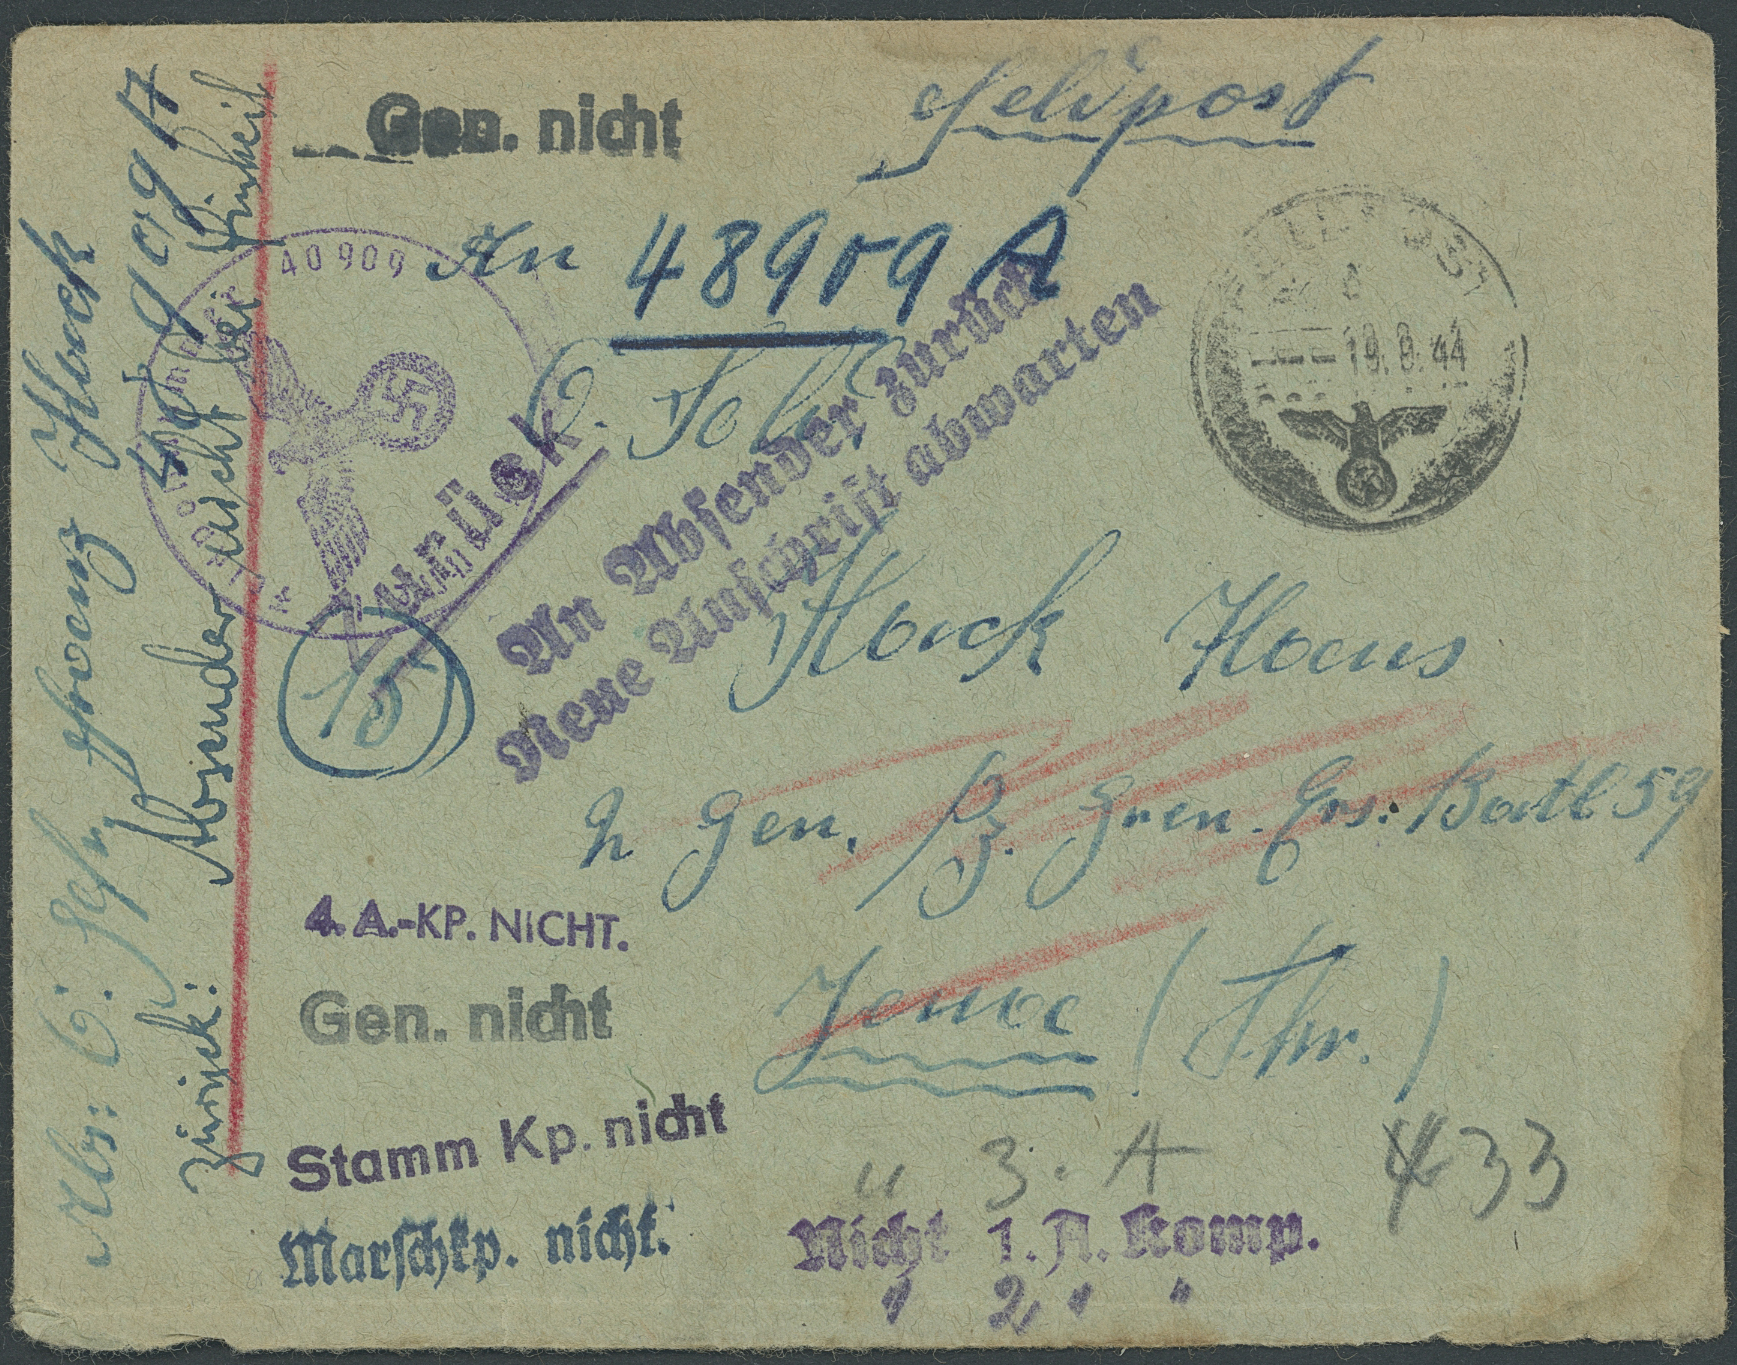 Gen. nicht
Feldpost
An 48909 A
40909
FELDPOST
19.9.44
Zurück
An Absender zurück
Neue Anschrift abwarten
15
Hans
Gen. Gren. Ers. Batl 59
4. A.-KP. NICHT.
Gen. nicht
Jena (Thr.)
Stamm Kp. nicht
" 3. A 433
Marschkp. nicht.
Nicht 1. A. Komp.
" 2 " "
Abs: O. Gefr. Franz
zurück: Absender nicht bei Einheit